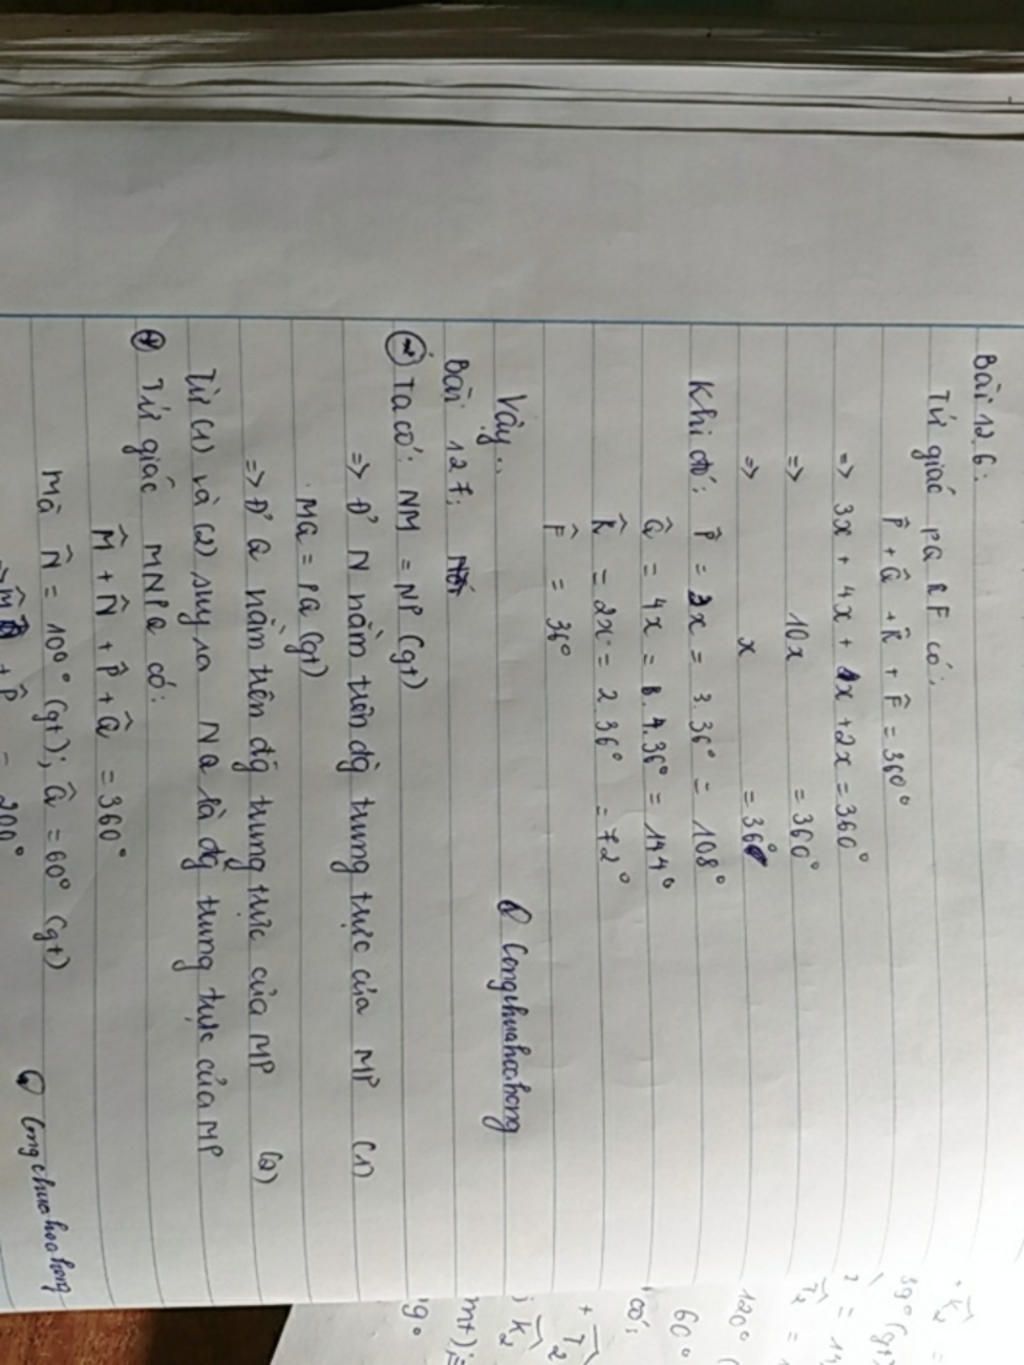 Bài 12.6:
Tứ giác PQRF có:
P̂ + Q̂ + R̂ + F̂ = 360°
=> 3x + 4x + x + 2x = 360°
=> 10x = 360°
=> x = 36°
Khi đó: P̂ = 3x = 3.36° = 108°
Q̂ = 4x = 4.36° = 144°
R̂ = 2x = 2 36° = 72°
F̂ = 36°
Vậy..
Congchuahoahong
Bài 12 7:
Ta có: NM = NP (gt)
=> Đ' N nằm trên đg trung trực của MP (1)
MQ = PQ (gt)
=> Đ' Q nằm trên đg trung trực của MP (2)
Từ (1) và (2) suy ra NQ là đg trung trực của MP
Tứ giác MNPQ có:
M̂ + N̂ + P̂ + Q̂ = 360°
Mà N̂ = 100° (gt); Q̂ = 60° (gt)
Congchuahoahong
+ P̂ = 200°
120°
60°
có:
+ T̂2
K̂2
g°